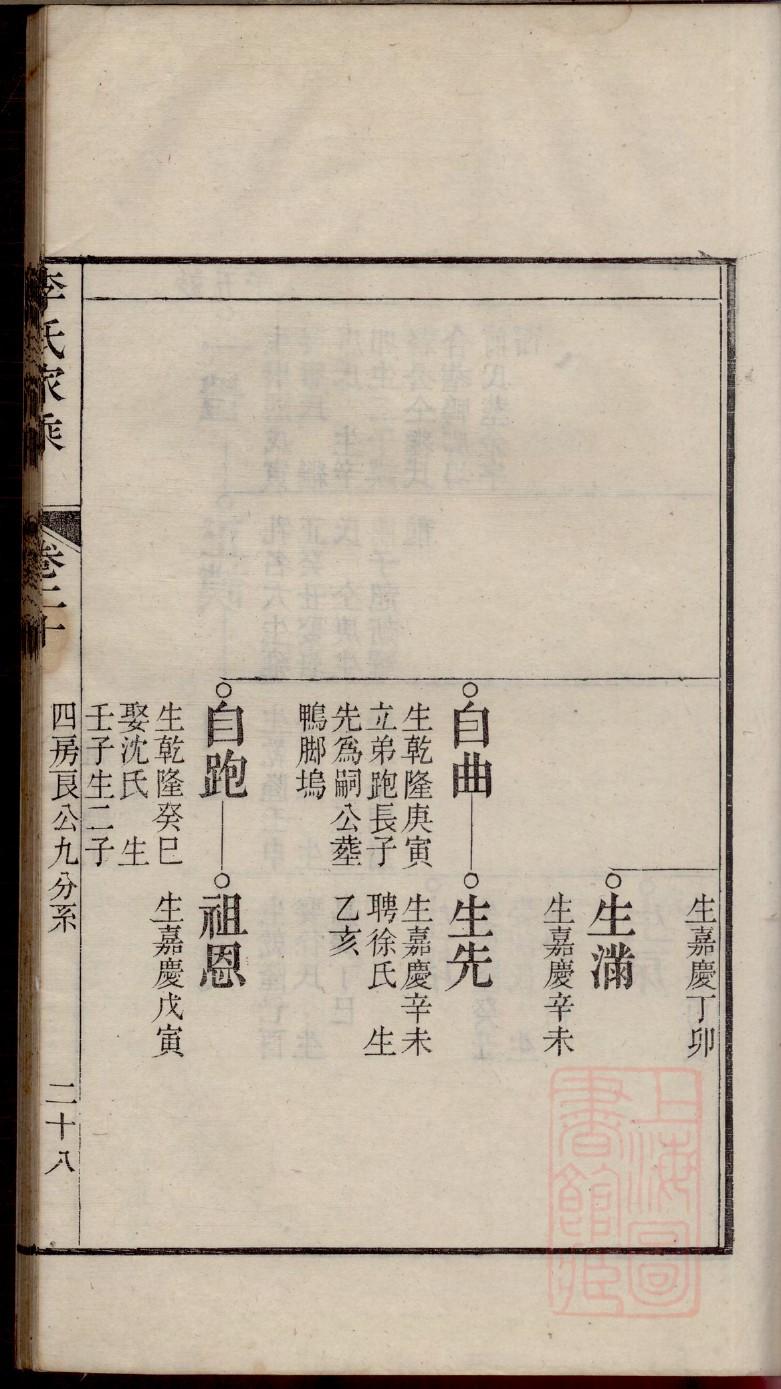 生嘉慶丁卯
生滿
生嘉慶辛未
自曲
生乾隆庚寅
立弟跑長子
先爲嗣公塟
鴨脚塢
生先
生嘉慶辛未
聘徐氏　生
乙亥
自跑
生乾隆癸巳
娶沈氏　生
壬子生二子
祖恩
生嘉慶戊寅
李氏家乘
卷二十
四房良公九分系
二十八
上海圖書館藏